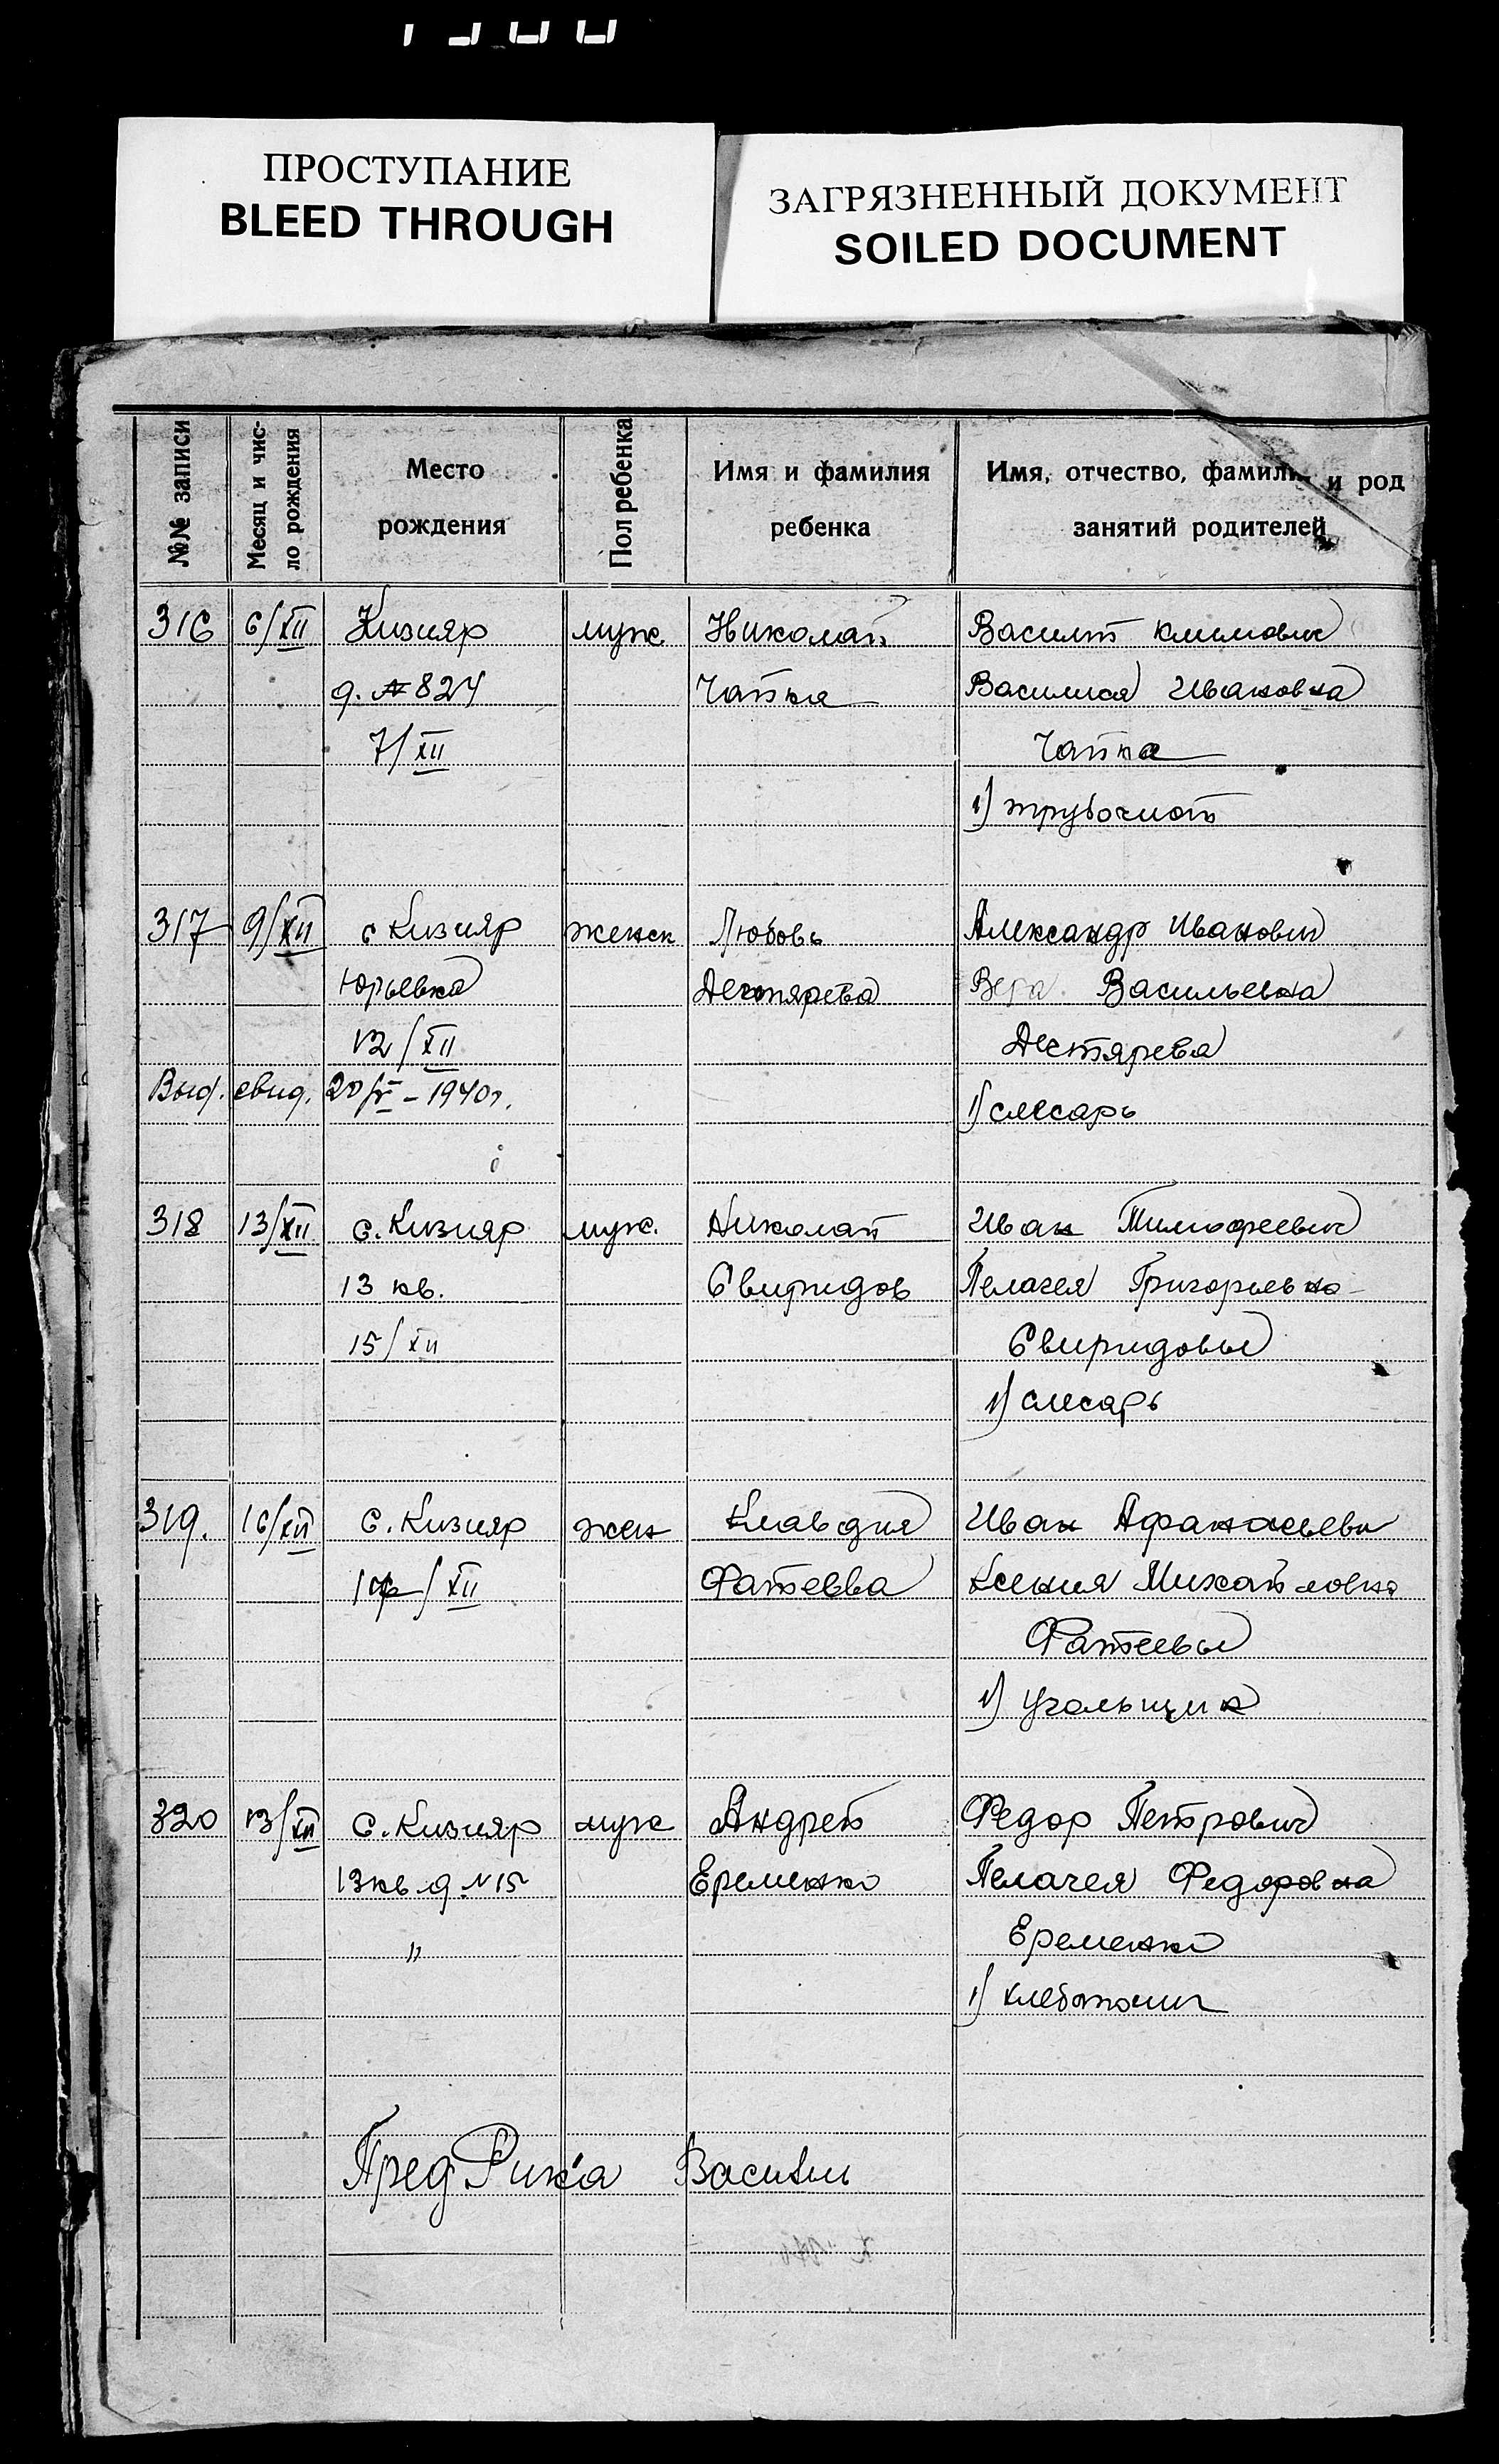 ПРОСТУПАНИЕ
BLEED THROUGH
ЗАГРЯЗНЕННЫЙ ДОКУМЕНТ
SOILED DOCUMENT
№№ записи
Месяц и чис-
ло рождения
Место
рождения
Пол ребенка
Имя и фамилия
ребенка
Имя, отчество, фамилия и род
занятий родителей
316 6/XII Кизияр муж Николай Василий Климович
д. № 824 Чайка Василиса Ивановна
7/XII Чайка
1) трубочист
317 9/XII с Кизияр женск Любовь Александр Иванович
Юрьевка Дегтярева Вера Васильевна
12/XII Дегтярева
Выд. свид. 20/V-1940г. 1) слесарь
318 13/XII с. Кизияр муж. Николай Иван Тимофеевич
13 кв. Свиридов Пелагея Григорьевна
15/XII Свиридовы
1) слесарь
319. 16/XII с. Кизияр жен Клавдия Иван Афанасьеви
/XII Фатеева Ксения Михайловна
Фатеевы
1) угольщик
320 13/XII с. Кизияр муж Андрей Федор Петрович
13 кв. д. N 15 Еременко Пелагея Федоровна
" Еременко
1) хлебопашец
Пред Рика